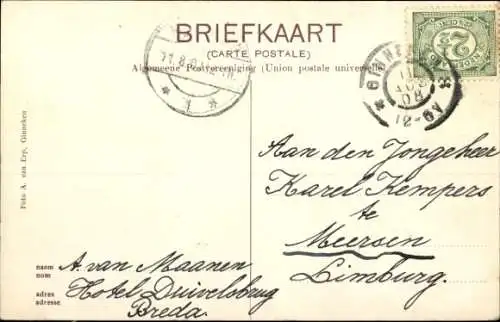 BRIEFKAART
(CARTE POSTALE)
Algemeene Postvereeniging (Union postale universelle)
Foto A. van Erp, Ginneken
Aan den Jongeheer
Karel Kempers
te
Meersen
Limburg.
naam
nom
A. van Maanen
adres
adresse
Hotel Duivelsbrug
Breda.